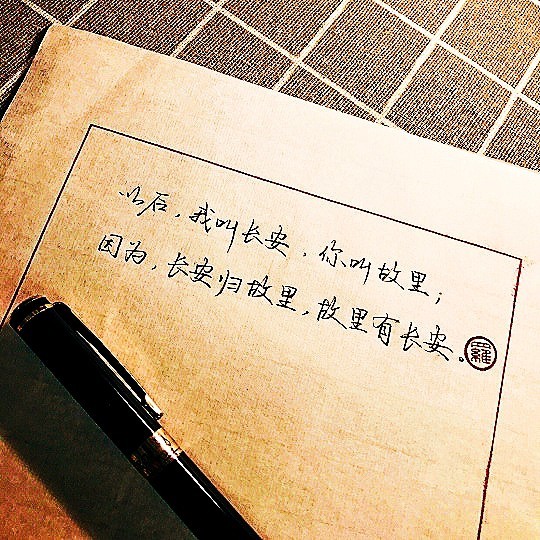 以后，我叫长安，你叫故里；
因为，长安归故里，故里有长安。
羅